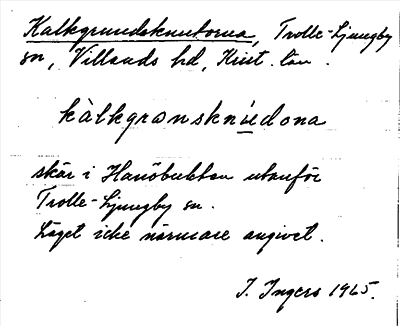 Kalkgrundsknutorna, Trolle-Ljungby
sn, Villands hd, Krist. län.
kàlkgrənsknúədona
skär i Hanöbukten utanför
Trolle-Ljungby sn.
Läget icke närmare angivet.
I. Ingers 1965.